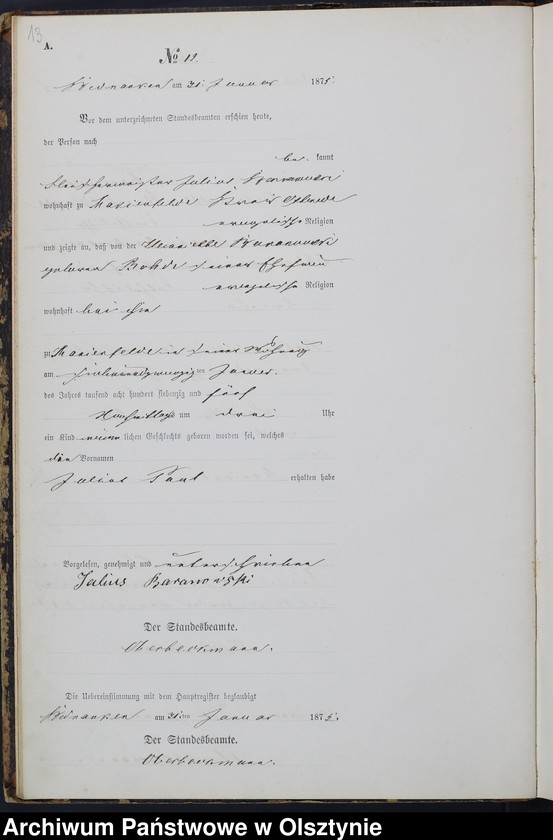 13
A.
No 12.
am 31 Januar 1875.
Vor dem unterzeichneten Standesbeamten erschien heute,
der Person nach
be kannt
Fleischermeister Julius Baranowski
wohnhaft zu Marienfelde Kreis Osterode
evangelischer Religion
und zeigte an, daß von der Baranowski
geborenen Rohde seiner Ehefrau
evangelischer Religion
wohnhaft bei ihm
zu Marienfelde in seiner Wohnung
am siebenundzwanzigten Januar
des Jahres tausend acht hundert siebenzig und fünf
Nachmittags um drei Uhr
ein Kind männlichen Geschlechts geboren worden sei, welches
die Vornamen
Julius Paul erhalten habe
Vorgelesen, genehmigt und unterschrieben
Julius Baranowski
Der Standesbeamte.
Die Uebereinstimmung mit dem Hauptregister beglaubigt
am 31ten Januar 1875.
Der Standesbeamte.
Archiwum Państwowe w Olsztynie